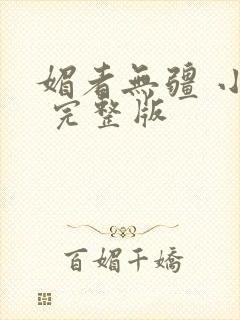 媚者無疆 小
完整版
百媚千嬌